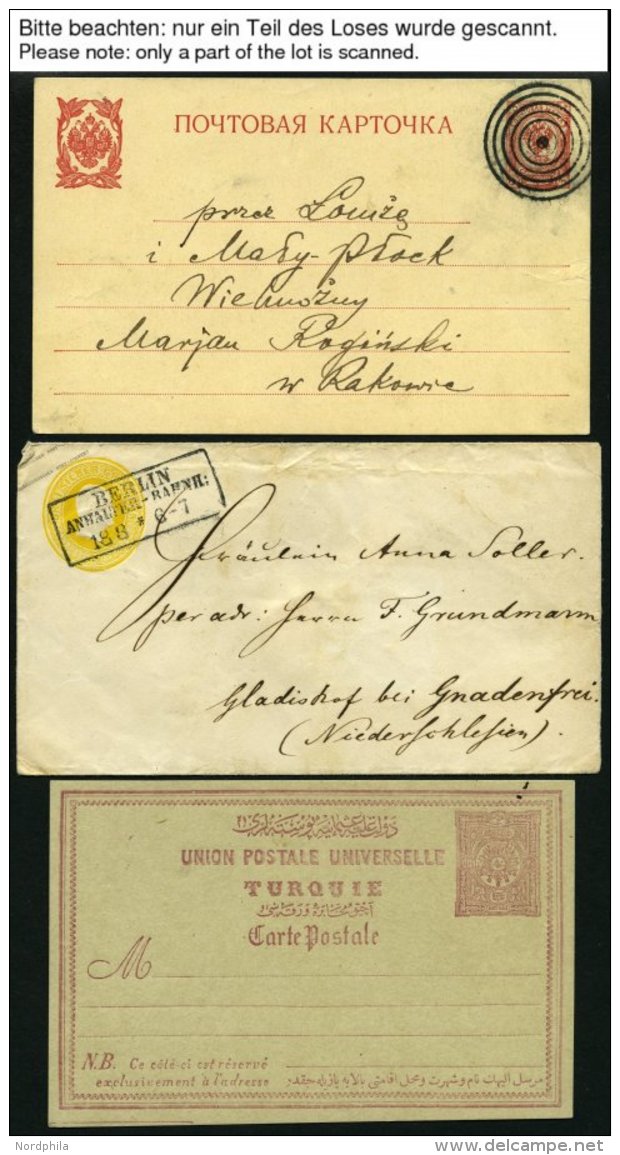 Bitte beachten: nur ein Teil des Loses wurde gescannt.
Please note: only a part of the lot is scanned.
ПОЧТОВАЯ КАРТОЧКА
przez Łomżę
i Mały-Płock
Wielmożny
Marjan Rogiński
w Rakowie
BERLIN
ANHALTER-BAHNH:
18 8 * 6-7
Fräulein Anna Soller.
per adr: Herrn F. Grundmann
Gladishof bei Gnadenfrei.
(Niederschlesien).
UNION POSTALE UNIVERSELLE
TURQUIE
Carte Postale
M
N.B. Ce côté-ci est réservé
exclusivement à l'adresse
Nordphila